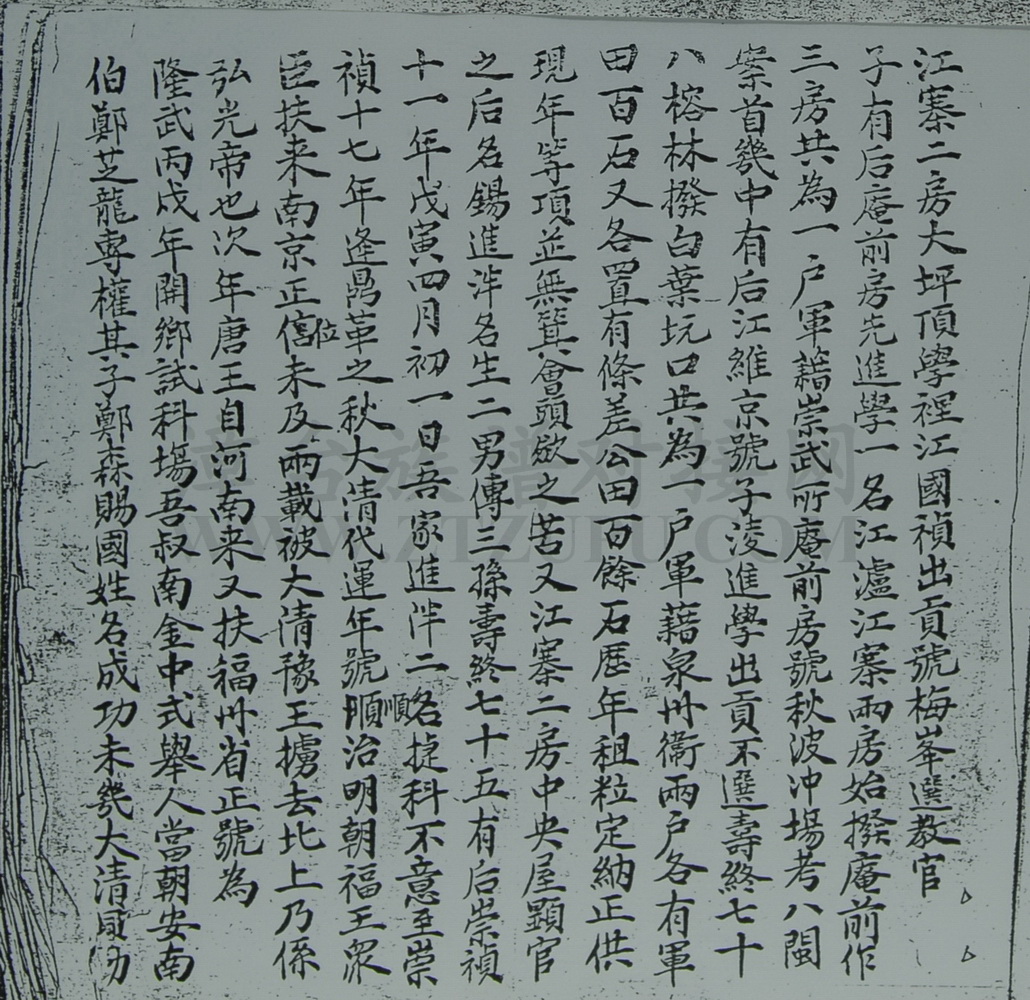 江寨二房大坪頂學裡江國禎出貢號梅峯選教官
子有后庵前房先進學一名江瀘江寨兩房始撥庵前作
三房共為一户軍藉崇武所庵前房號秋波冲場考八閩
案首幾中有后江維京號子淩進學出貢不選壽終七十
八榕林撥白葉坑口共為一户軍藉泉州衞兩户各有軍
田百石又各置有條差公田百餘石歷年租粒定納正供
現年等項並無箕會頭歛之苦又江寨二房中央屋顯官
之后名錫進泮名生二男傳三孫壽終七十五有后崇禎
十一年戊寅四月初一日吾家進泮二名捷科不意至崇
禎十七年逢鼎革之秋大清代運年號順順治明朝福王眾
臣扶来南京正位未及兩載被大清豫王擄去北上乃係
弘光帝也次年唐王自河南来又扶福州省正號為
隆武丙戌年開鄉試科場吾叔南金中式舉人當朝安南
伯鄭芝龍專權其子鄭森賜國姓名成功未幾大清
WWW.ZTZUPU.COM